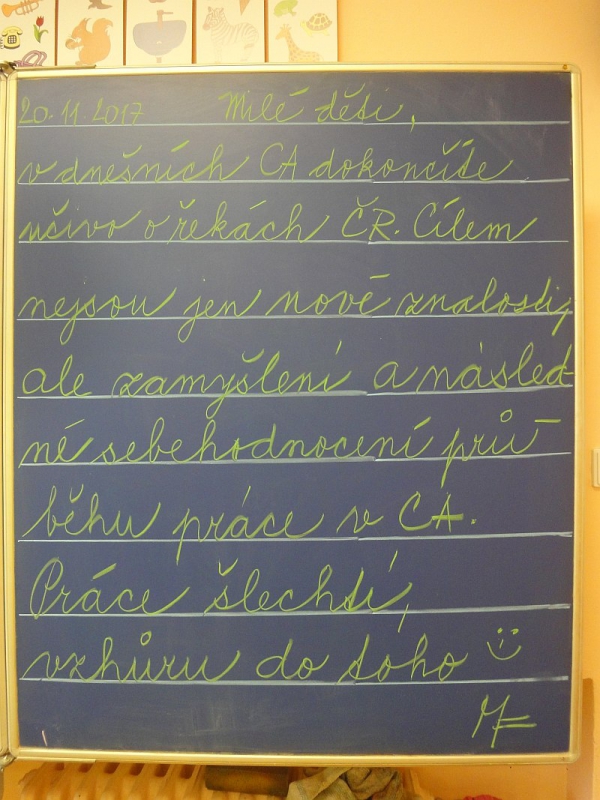 20.11.2017 Milé děti,
v dnešních CA dokončíte
učivo o řekách ČR. Cílem
nejsou jen nové znalosti,
ale zamyšlení a násled-
né sebehodnocení prů-
běhu práce v CA.
Práce šlechtí,
vzhůru do toho
MF